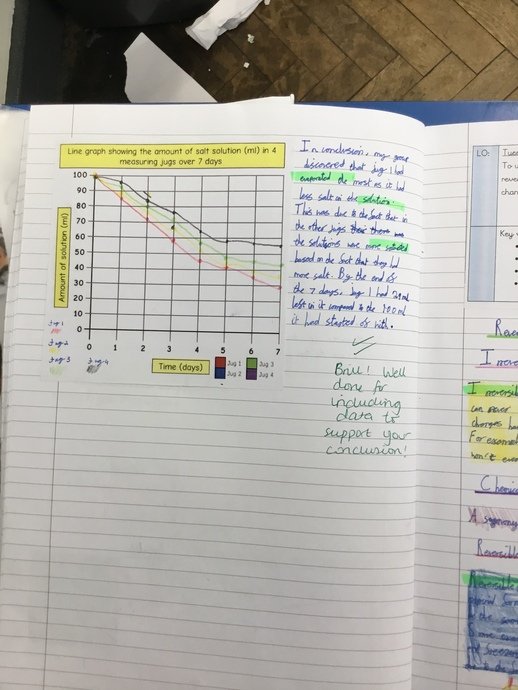 Line graph showing the amount of salt solution (ml) in 4
measuring jugs over 7 days
Amount of solution (ml)
100
90
80
70
60
50
40
30
20
10
0
0 1 2 3 4 5 6 7
Time (days)
Jug 1
Jug 2
Jug 3
Jug 4
Jug 1
Jug 2
Jug 3
Jug 4
In conclusion, my group
discovered that jug 1 had
evaporated the most as it had
less salt in the solution.
This was due to the fact that in
the other jugs there was
the solutions were more
based on the fact that they had
more salt. By the end of
the 7 days, jug 1 had
lost in it compared to the 100ml
it had started of with.
Brill! Well
done for
including
data to
support your
conclusion!
LO:
Tues
To u
reve
chan
Key
Rever
I rever
I reversib
can never
changes
For exam
won't
Chemic
A synonym
Reversible
Reversible